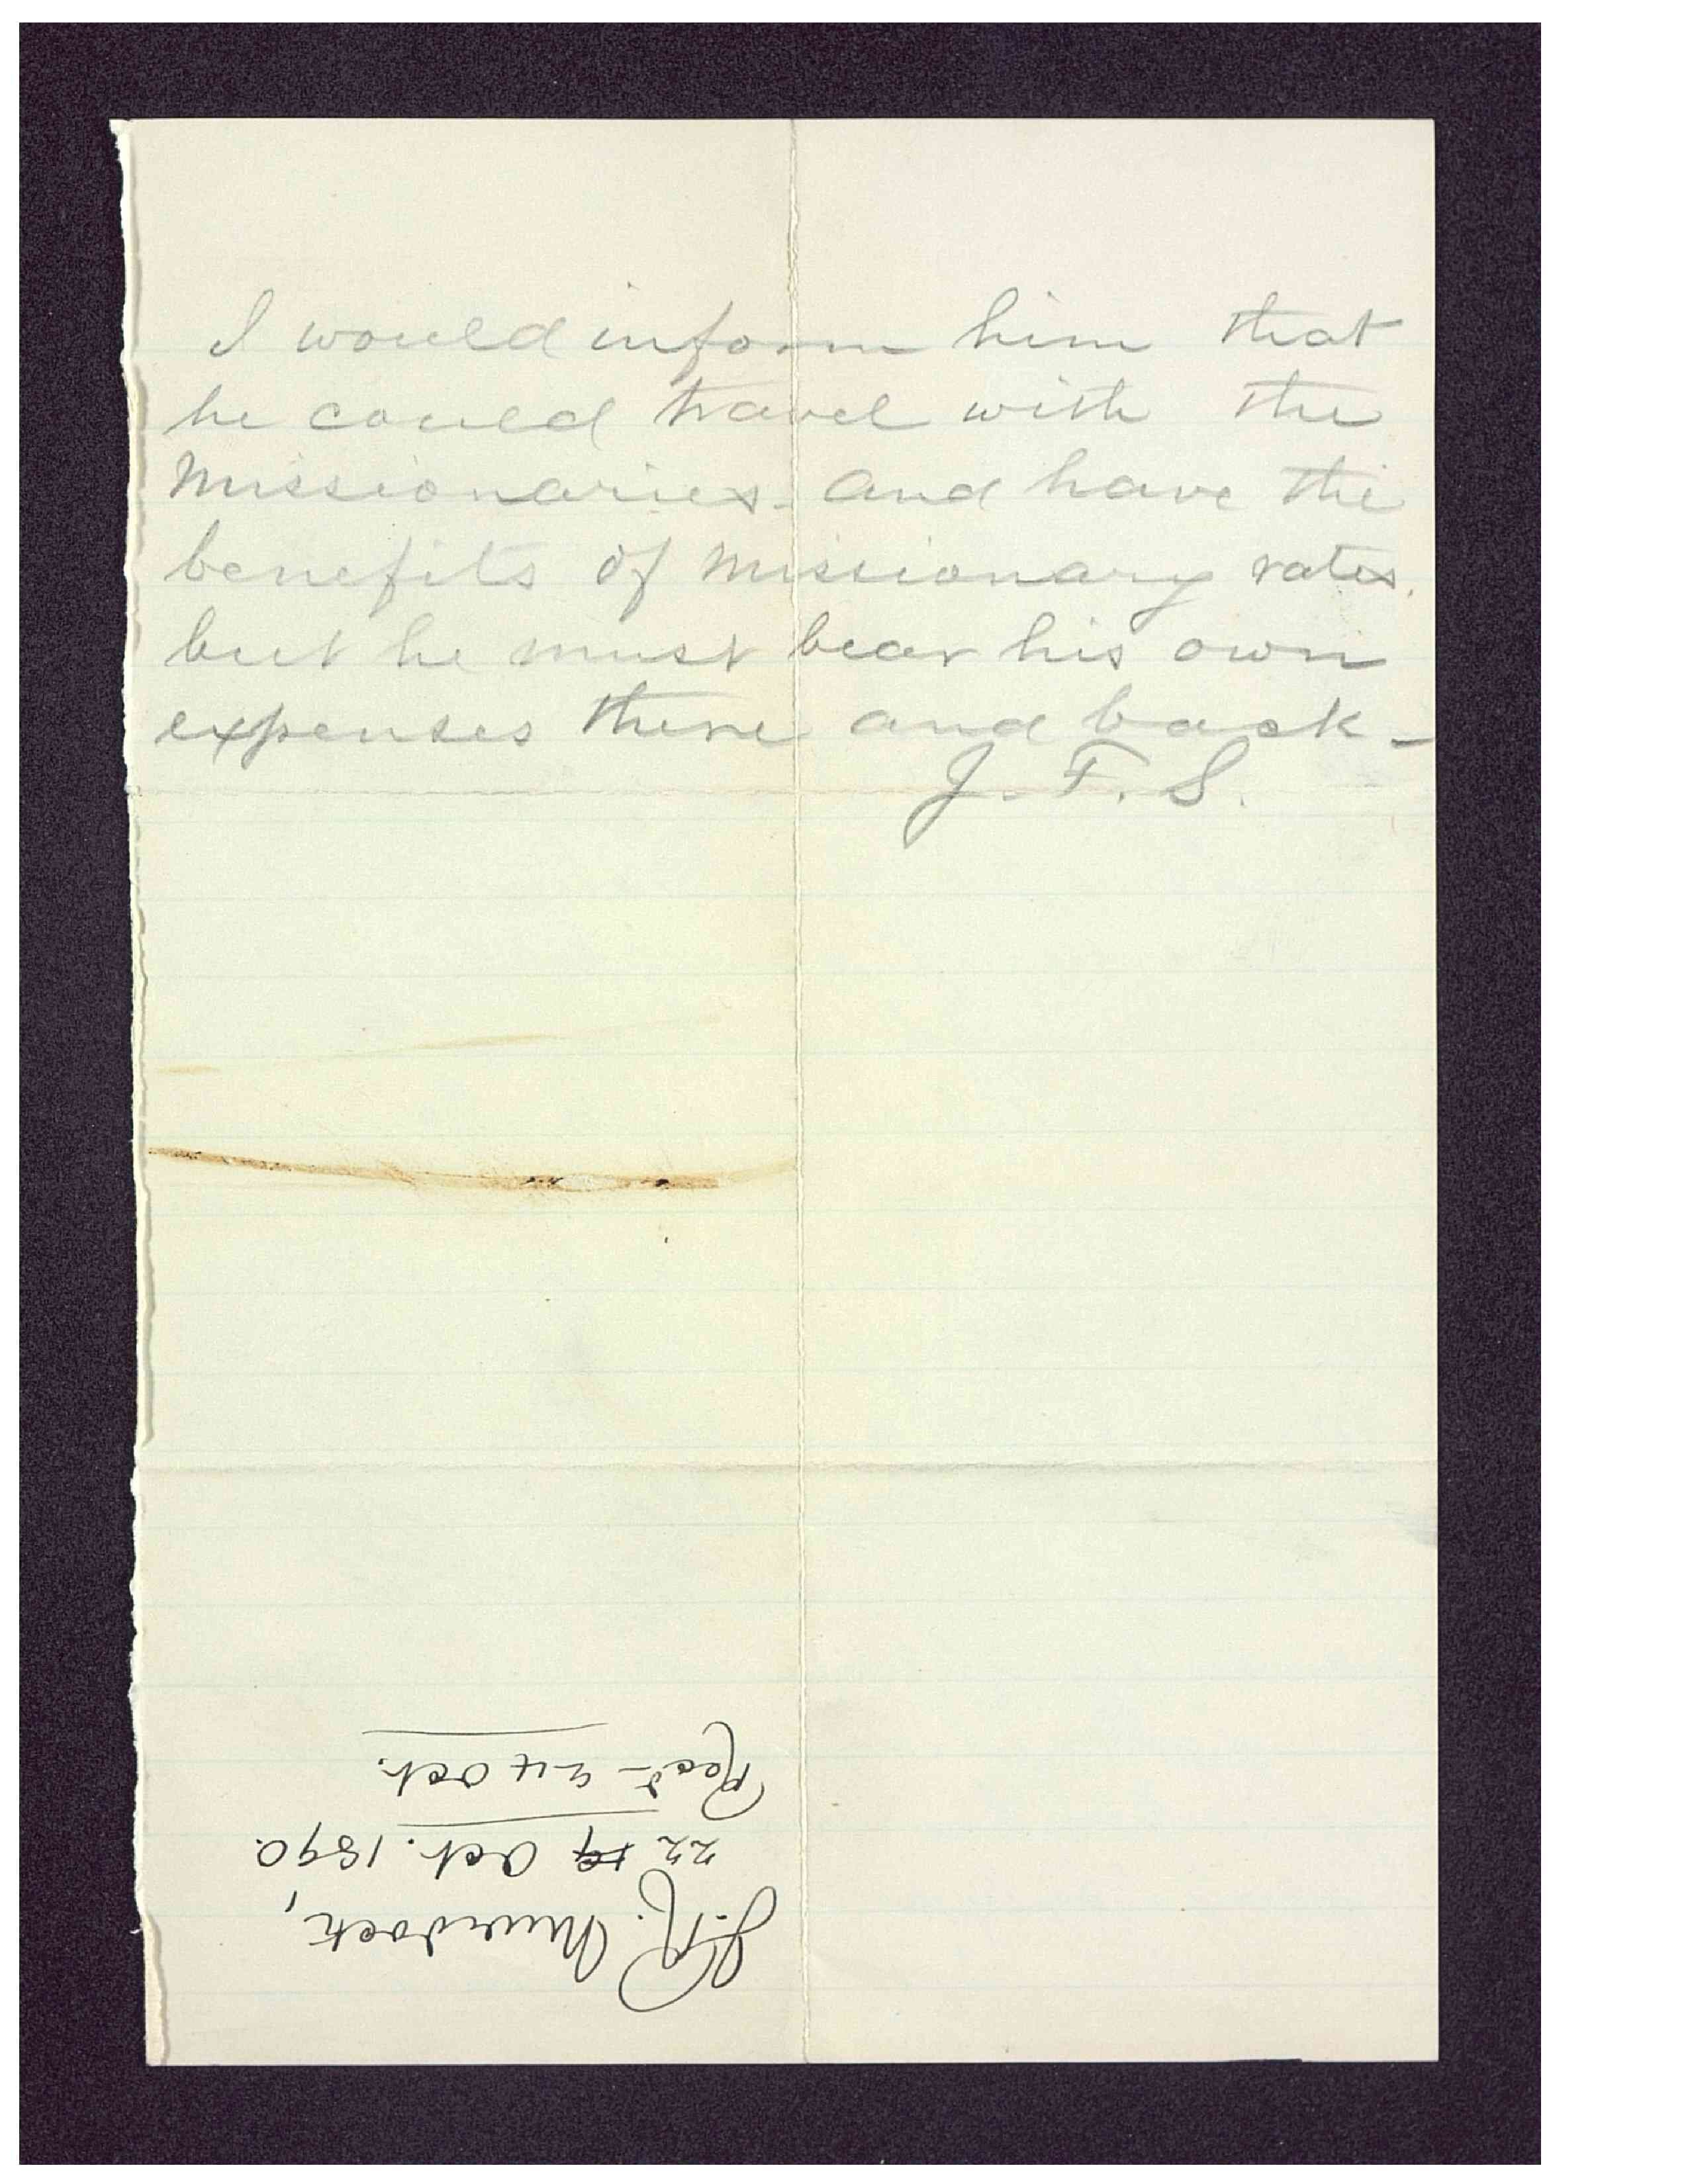 I would inform him that
he could travel with the
missionaries and have the
benefits of missionary rates.
but he must bear his own
expenses there and back -
J. F. S.
J. R. Murdock,
22 19 Oct. 1890.
Recd - 24 Oct.